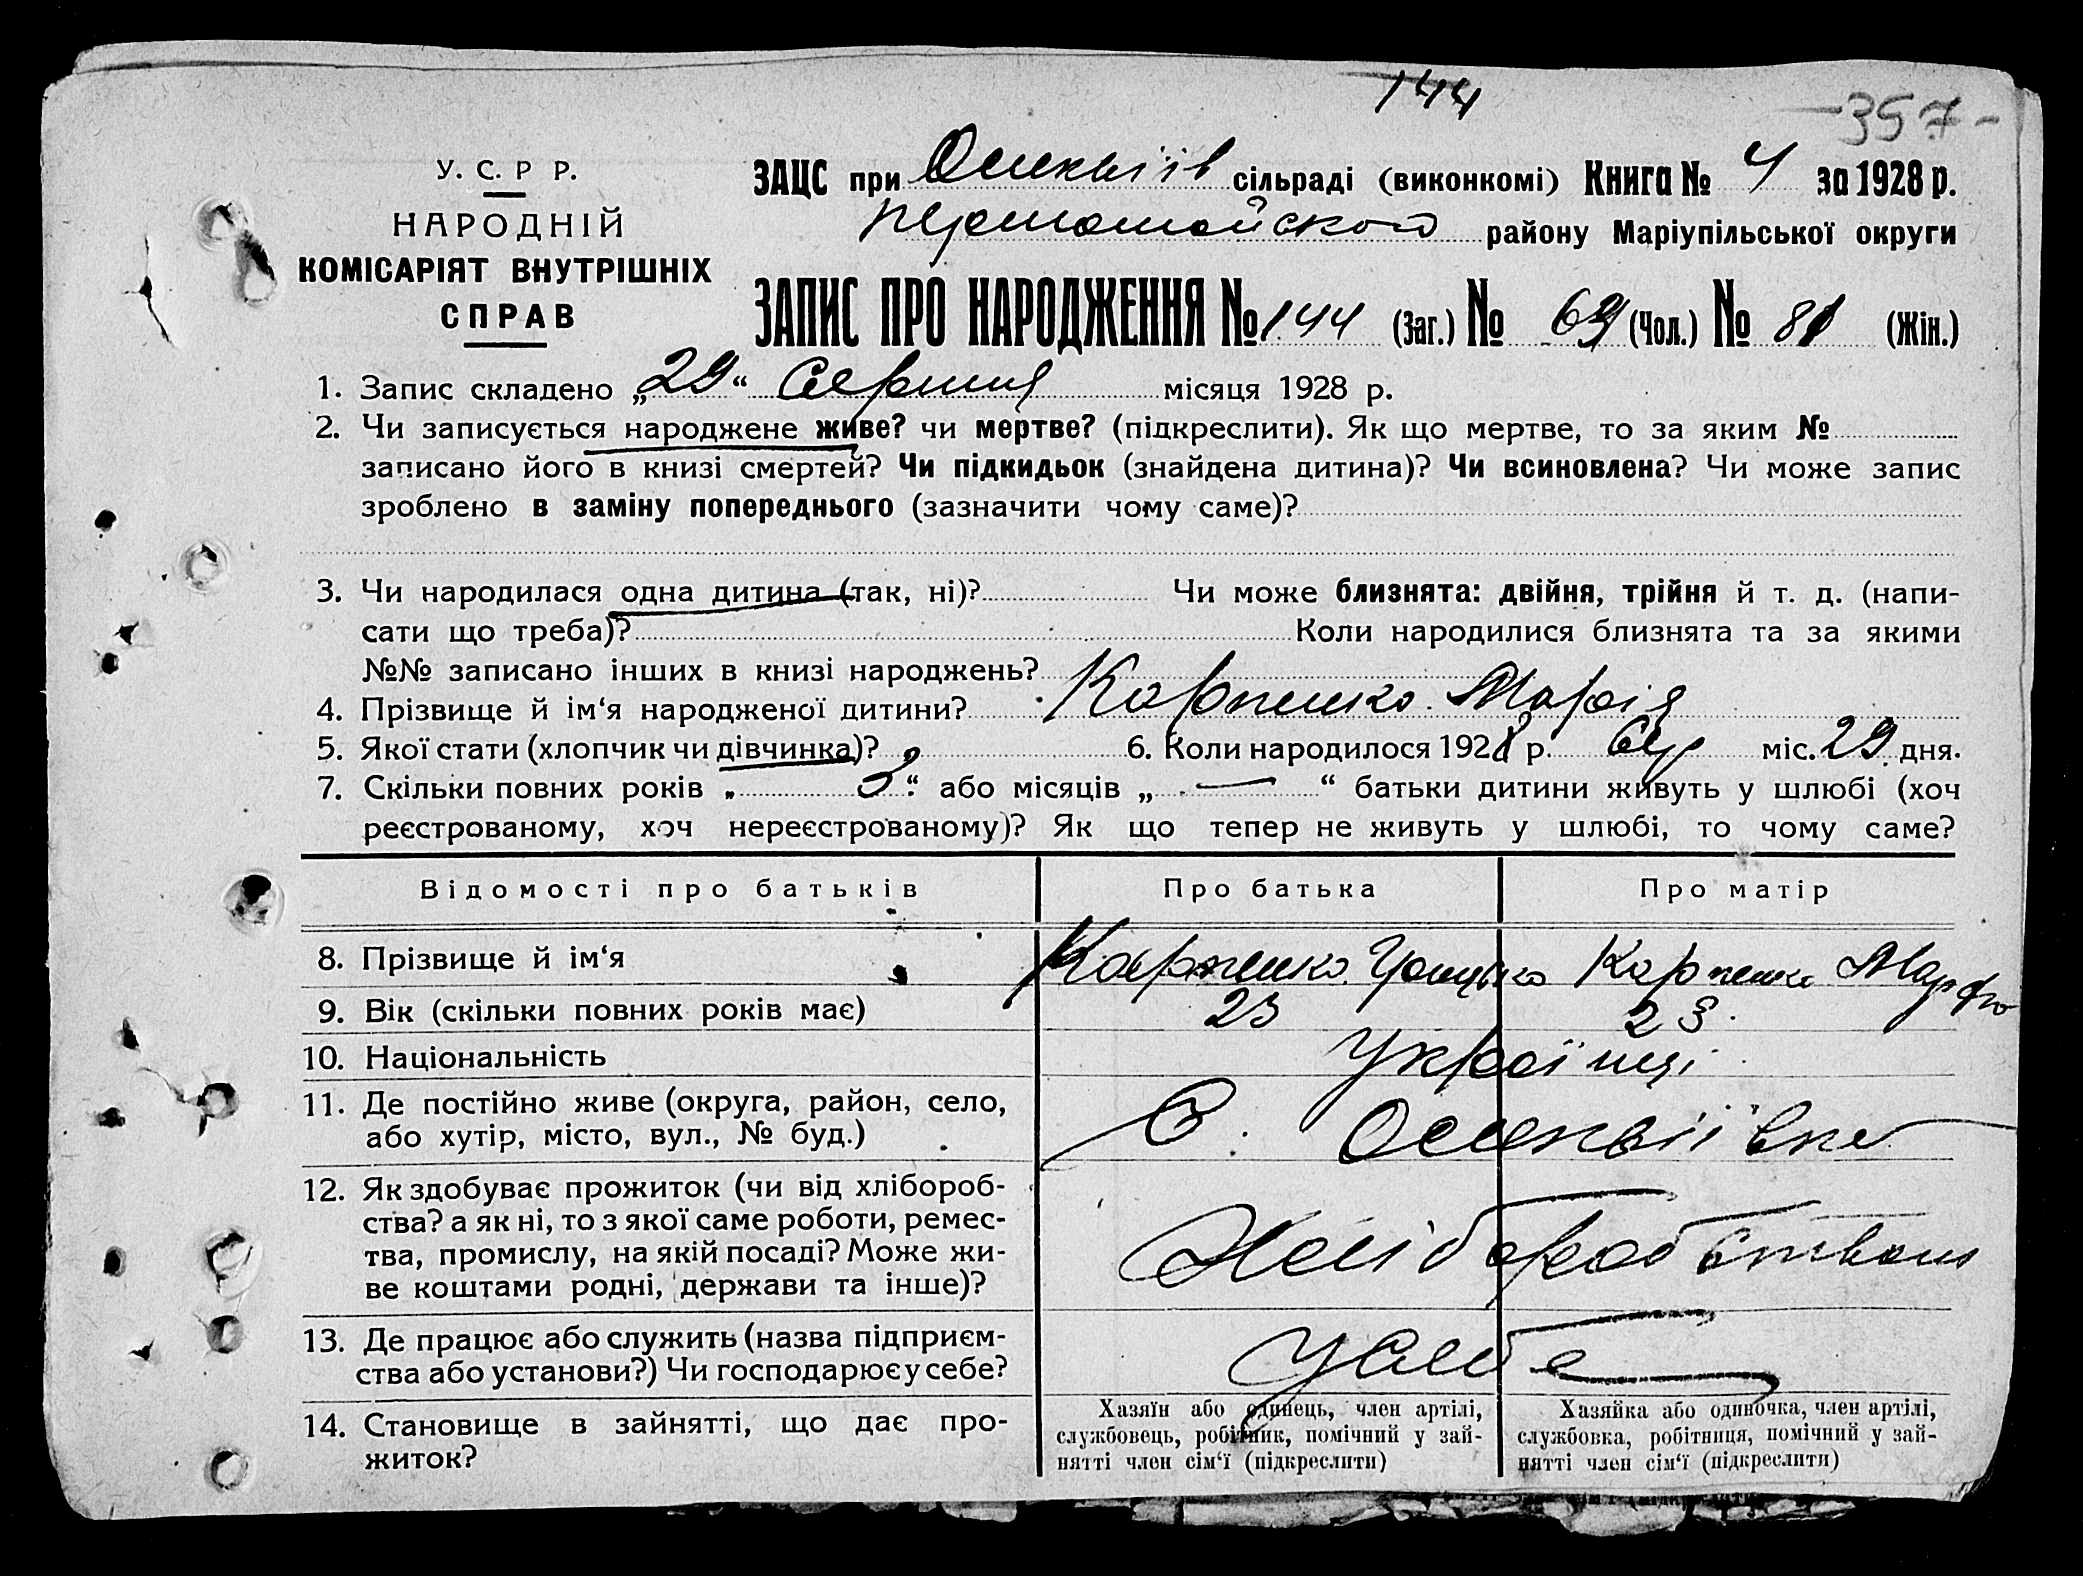 144
-357-
У. С. Р Р.
НАРОДНІЙ
КОМІСАРІЯТ ВНУТРІШНІХ
СПРАВ
ЗАЦС при сільраді (виконкомі) Книга № 4 за 1928 р.
Першомайского району Маріупільської округи
ЗАПИС ПРО НАРОДЖЕННЯ № 144 (Заг.) № 63 (Чол.) № 81 (Жін.)
1. Запис складено „29“ Серпня місяця 1928 р.
2. Чи записується народжене живе? чи мертве? (підкреслити). Як що мертве, то за яким №
записано його в книзі смертей? Чи підкидьок (знайдена дитина)? Чи всиновлена? Чи може запис
зроблено в заміну попереднього (зазначити чому саме)?
3. Чи народилася одна дитина (так, ні)? Чи може близнята: двійня, трійня й т. д. (напи-
сати що треба)? Коли народилися близнята та за якими
№№ записано інших в книзі народжень?
4. Прізвище й ім‘я народженої дитини? Карпенко Марія
5. Якої стати (хлопчик чи дівчинка)? 6. Коли народилося 1928 р. Сер міс. 29 дня.
7. Скільки повних років „ 3 “ або місяців „ — “ батьки дитини живуть у шлюбі (хоч
реєстрованому, хоч нереєстрованому)? Як що тепер не живуть у шлюбі, то чому саме?
Відомості про батьків Про батька Про матір
8. Прізвище й ім‘я Карпенко Грицько Карпенко Марфа
9. Вік (скільки повних років має) 23 23
10. Національність Українці
11. Де постійно живе (округа, район, село,
або хутір, місто, вул., № буд.) С.
12. Як здобуває прожиток (чи від хлібороб-
ства? а як ні, то з якої саме роботи, ремес-
тва, промислу, на якій посаді? Може жи-
ве коштами родні, держави та інше)? Хліборобством
13. Де працює або служить (назва підприєм-
ства або установи?) Чи господарює у себе? У себе
14. Становище в зайнятті, що дає про-
житок?
Хазяїн або одинець, член артілі,
службовець, робітник, помічний у зай-
нятті член сім‘ї (підкреслити)
Хазяйка або одиночка, член артілі,
службовка, робітниця, помічний у зай-
нятті член сім‘ї (підкреслити)